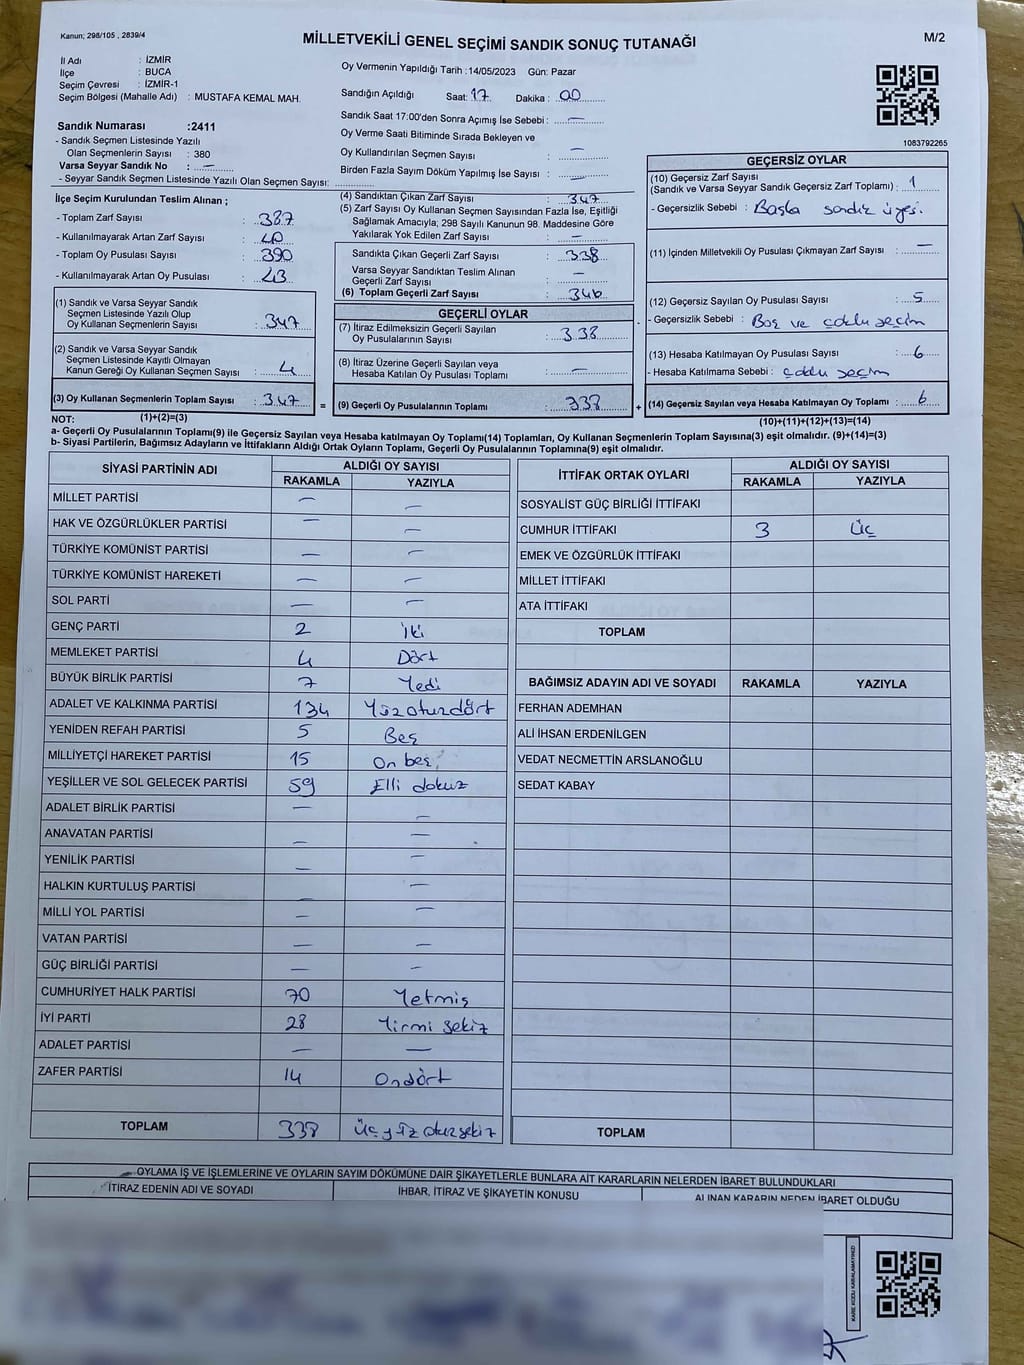 Kanun; 298/105 , 2839/4
MİLLETVEKİLİ GENEL SEÇİMİ SANDIK SONUÇ TUTANAĞI
M/2
İl Adı : İZMİR
İlçe : BUCA
Seçim Çevresi : İZMİR-1
Seçim Bölgesi (Mahalle Adı) : MUSTAFA KEMAL MAH.
Sandık Numarası :2411
- Sandık Seçmen Listesinde Yazılı
Olan Seçmenlerin Sayısı : 380
Varsa Seyyar Sandık No : —
- Seyyar Sandık Seçmen Listesinde Yazılı Olan Seçmen Sayısı:
Oy Vermenin Yapıldığı Tarih :14/05/2023 Gün: Pazar
Sandığın Açıldığı Saat: 17 Dakika : 00
Sandık Saat 17:00'den Sonra Açımış İse Sebebi : —
Oy Verme Saati Bitiminde Sırada Bekleyen ve
Oy Kullandırılan Seçmen Sayısı : —
Birden Fazla Sayım Döküm Yapılmış İse Sayısı : —
1083792265
İlçe Seçim Kurulundan Teslim Alınan ;
- Toplam Zarf Sayısı : 387
- Kullanılmayarak Artan Zarf Sayısı : 40
- Toplam Oy Pusulası Sayısı : 390
- Kullanılmayarak Artan Oy Pusulası : 43
(1) Sandık ve Varsa Seyyar Sandık
Seçmen Listesinde Yazılı Olup
Oy Kullanan Seçmenlerin Sayısı : 347
(2) Sandık ve Varsa Seyyar Sandık
Seçmen Listesinde Kayıtlı Olmayan
Kanun Gereği Oy Kullanan Seçmen Sayısı : 4
(3) Oy Kullanan Seçmenlerin Toplam Sayısı : 347
(1)+(2)=(3)
(4) Sandıktan Çıkan Zarf Sayısı : 347
(5) Zarf Sayısı Oy Kullanan Seçmen Sayısından Fazla İse, Eşitliği
Sağlamak Amacıyla; 298 Sayılı Kanunun 98. Maddesine Göre
Yakılarak Yok Edilen Zarf Sayısı : —
Sandıkta Çıkan Geçerli Zarf Sayısı : 338
Varsa Seyyar Sandıktan Teslim Alınan
Geçerli Zarf Sayısı : —
(6) Toplam Geçerli Zarf Sayısı : 346
GEÇERLİ OYLAR
(7) İtiraz Edilmeksizin Geçerli Sayılan
Oy Pusulalarının Sayısı : 338
(8) İtiraz Üzerine Geçerli Sayılan veya
Hesaba Katılan Oy Pusulası Toplamı : —
= (9) Geçerli Oy Pusulalarının Toplamı : 338
GEÇERSİZ OYLAR
(10) Geçersiz Zarf Sayısı
(Sandık ve Varsa Seyyar Sandık Geçersiz Zarf Toplamı) : 1
- Geçersizlik Sebebi : Başka sandık üyesi.
(11) İçinden Milletvekili Oy Pusulası Çıkmayan Zarf Sayısı : —
(12) Geçersiz Sayılan Oy Pusulası Sayısı : 5
- Geçersizlik Sebebi : Boş ve çoklu seçim
(13) Hesaba Katılmayan Oy Pusulası Sayısı : 6
- Hesaba Katılmama Sebebi : çoklu seçim
+ (14) Geçersiz Sayılan veya Hesaba Katılmayan Oy Toplamı : 6
(10)+(11)+(12)+(13)=(14)
NOT:
a- Geçerli Oy Pusulalarının Toplamı(9) ile Geçersiz Sayılan veya Hesaba katılmayan Oy Toplamı(14) Toplamları, Oy Kullanan Seçmenlerin Toplam Sayısına(3) eşit olmalıdır. (9)+(14)=(3)
b- Siyasi Partilerin, Bağımsız Adayların ve İttifakların Aldığı Ortak Oyların Toplamı, Geçerli Oy Pusulalarının Toplamına(9) eşit olmalıdır.
SİYASİ PARTİNİN ADI ALDIĞI OY SAYISI
RAKAMLA YAZIYLA
MİLLET PARTİSİ — —
HAK VE ÖZGÜRLÜKLER PARTİSİ — —
TÜRKİYE KOMÜNİST PARTİSİ — —
TÜRKİYE KOMÜNİST HAREKETİ — —
SOL PARTİ — —
GENÇ PARTİ 2 iki
MEMLEKET PARTİSİ 4 Dört
BÜYÜK BİRLİK PARTİSİ 7 Yedi
ADALET VE KALKINMA PARTİSİ 134 Yüzotuzdört
YENİDEN REFAH PARTİSİ 5 Beş
MİLLİYETÇİ HAREKET PARTİSİ 15 On beş
YEŞİLLER VE SOL GELECEK PARTİSİ 59 Elli dokuz
ADALET BİRLİK PARTİSİ — —
ANAVATAN PARTİSİ — —
YENİLİK PARTİSİ — —
HALKIN KURTULUŞ PARTİSİ — —
MİLLİ YOL PARTİSİ — —
VATAN PARTİSİ — —
GÜÇ BİRLİĞİ PARTİSİ — —
CUMHURİYET HALK PARTİSİ 70 Yetmiş
İYİ PARTİ 28 Yirmi sekiz
ADALET PARTİSİ — —
ZAFER PARTİSİ 14 Ondört
TOPLAM 338 üç yüz otuzsekiz
İTTİFAK ORTAK OYLARI ALDIĞI OY SAYISI
RAKAMLA YAZIYLA
SOSYALİST GÜÇ BİRLİĞİ İTTİFAKI
CUMHUR İTTİFAKI 3 üç
EMEK VE ÖZGÜRLÜK İTTİFAKI
MİLLET İTTİFAKI
ATA İTTİFAKI
TOPLAM
BAĞIMSIZ ADAYIN ADI VE SOYADI RAKAMLA YAZIYLA
FERHAN ADEMHAN
ALİ İHSAN ERDENİLGEN
VEDAT NECMETTİN ARSLANOĞLU
SEDAT KABAY
TOPLAM
OYLAMA İŞ VE İŞLEMLERİNE VE OYLARIN SAYIM DÖKÜMÜNE DAİR ŞİKAYETLERLE BUNLARA AİT KARARLARIN NELERDEN İBARET BULUNDUKLARI
İTİRAZ EDENİN ADI VE SOYADI İHBAR, İTİRAZ VE ŞİKAYETİN KONUSU ALINAN KARARIN NEDEN İBARET OLDUĞU
KARE KODU KARALAMAYINIZ!